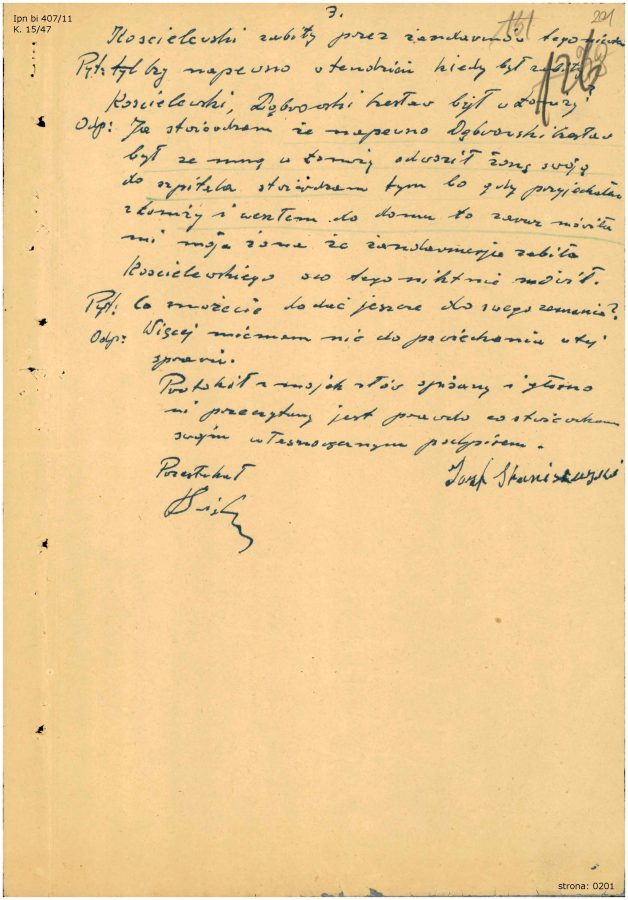 Ipn bi 407/11
K. 15/47
3.
151
201
126
Kościelewski zabity przez żandarmów tego nie wiem
Pyt: tyl by napewno w ten dzień kiedy był zabity
Kościelewski, Dąbrowski Czesław był w Łomży?
Odp: Ja stwierdzam że napewno Dąbrowski Czesław
był ze mną w Łomży odwoził żonę swoją
do szpitala stwierdzam tym bo gdy przyjechałem
z Łomży i weszłem do domu to zaraz mówiła
mi moja żona że żandarmerja zabiła
Kościelewskiego a o tego nikt nie mówił.
Pyt: Co możecie dodać jeszcze do swego zeznania?
Odp: Więcej nic mam nic do powiedzenia w tej
sprawie.
Protokół z mojch słów spisany i głośno
mi przeczytany jest prawdą co stwierdzam
swojm własnoręcznym podpisem.
Przesłuchał
Józef Staniszewski
strona: 0201